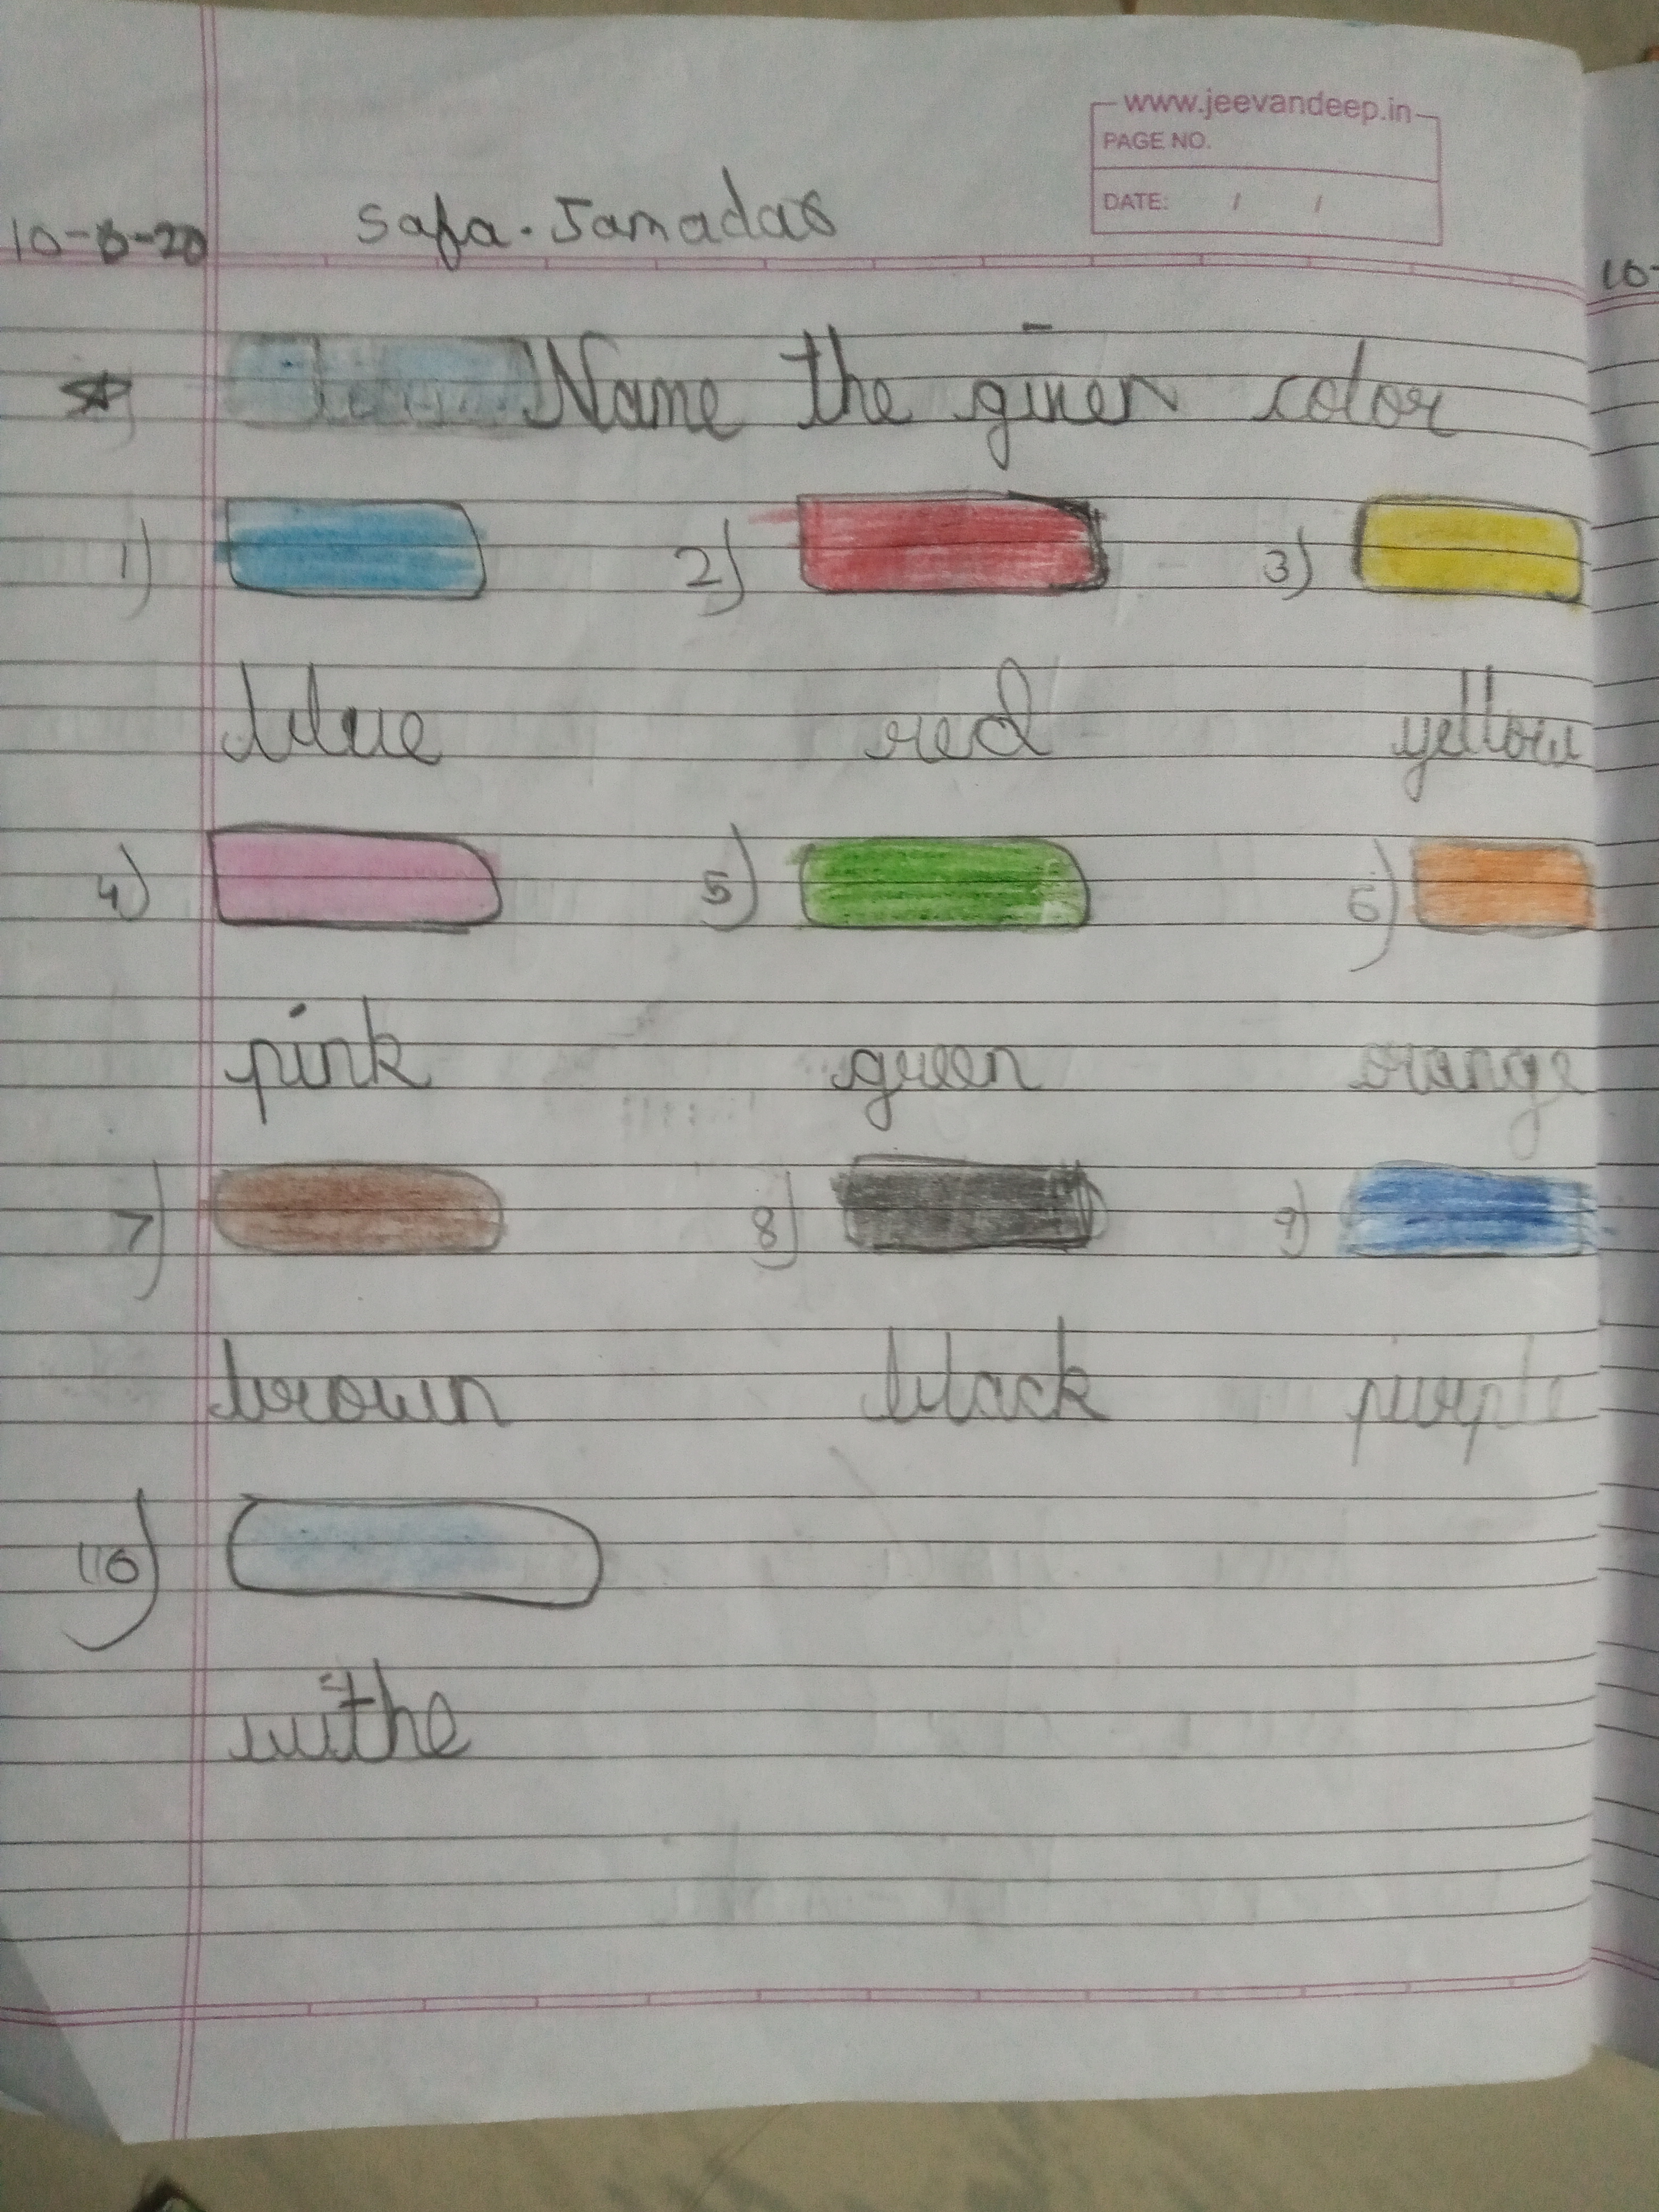 www.jeevandeep.in
PAGE NO.
DATE: / /
Safa. Jamadar
Name the given color
1) 2) 3)
blue red yellow
4) 5) 6)
pink green orange
7) 8) 9)
brown black purple
10)
withe